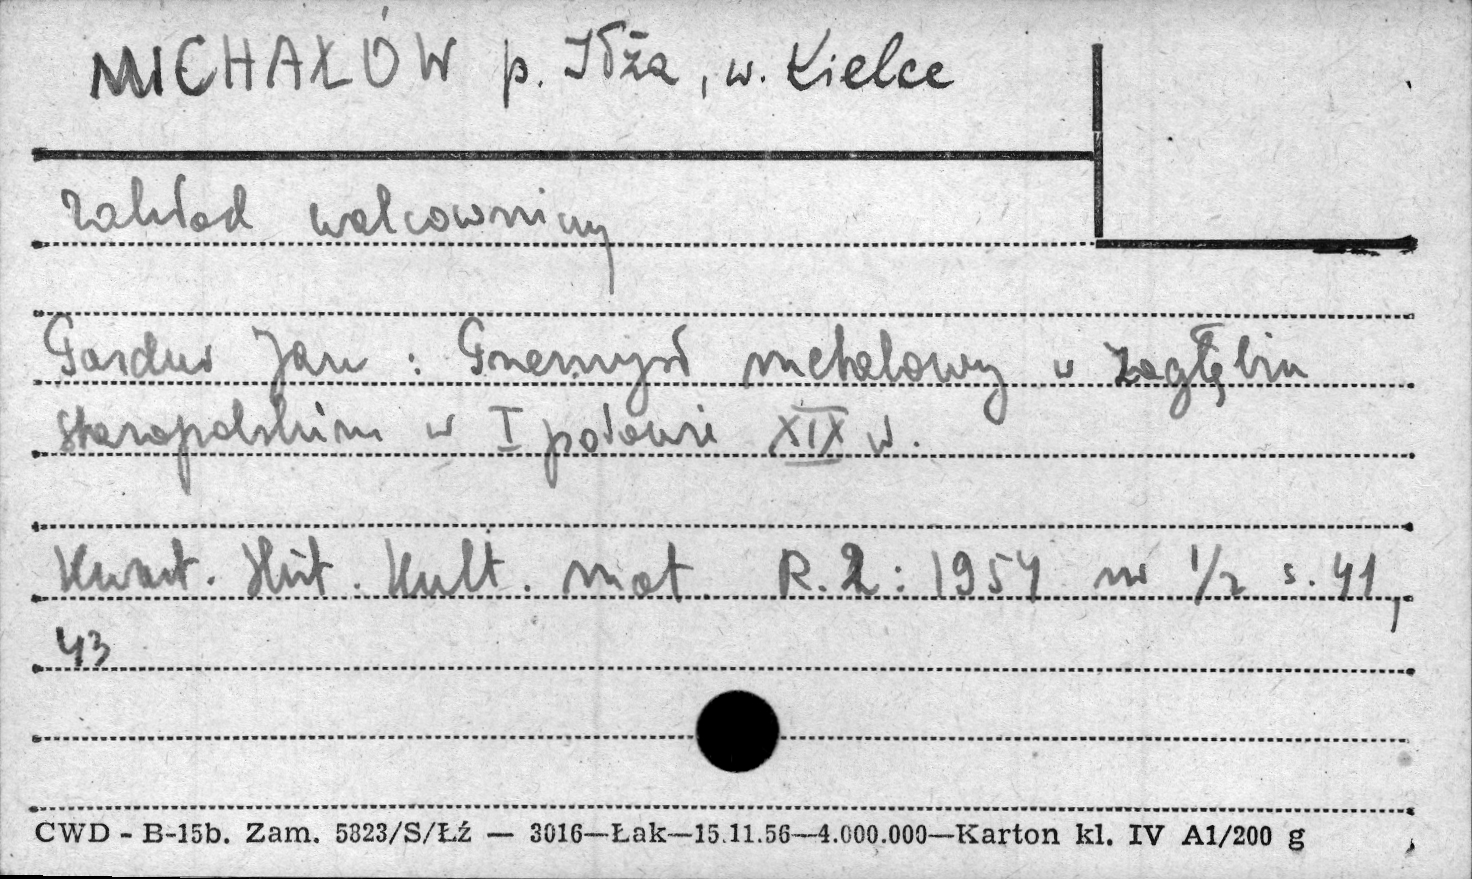 MICHAŁÓW p. Iłża, w. Kielce
Zakład walcowniczy
Jan : Przemysł metalowy w Zagłębiu
Staropolskim w I połowie XIX w.
Kwart. Hist. Kult. mat. R. 2 : 1954 nr 1/2 s. 41,
43
CWD - B-15b. Zam. 5823/S/Łź — 3016—Łak—15.11.56—4.000.000—Karton kl. IV A1/200 g